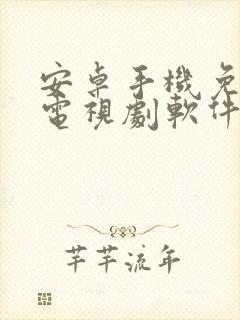 安卓手機免
電視劇軟件
芊芊流年